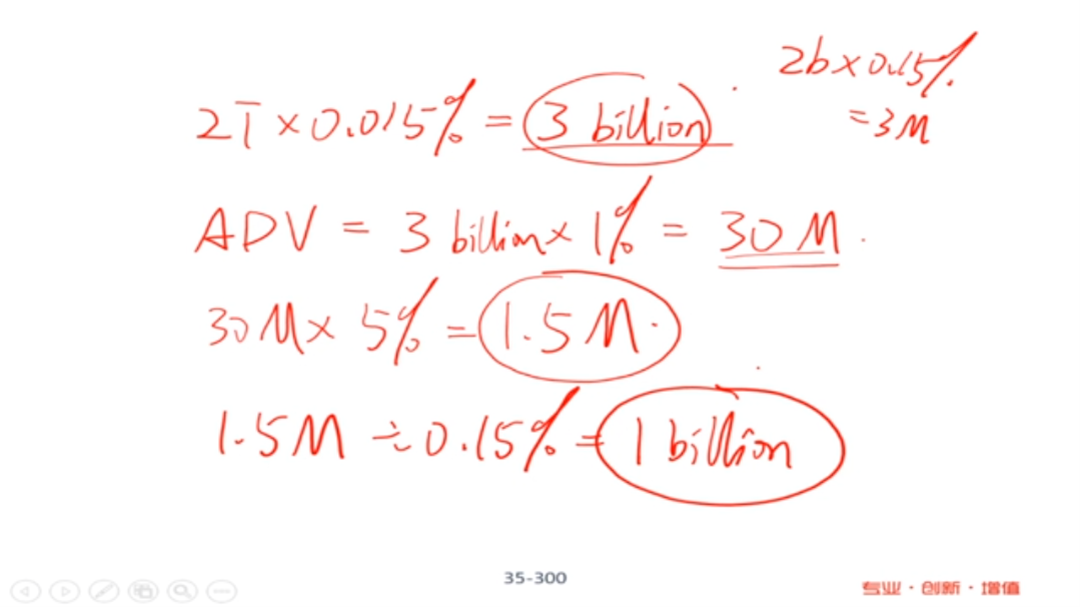 2b×0.15%
=3M
2T×0.015%=3 billion
ADV = 3 billion× 1% = 30M.
30M× 5% = 1.5M.
1.5M ÷0.15%= 1 billion
35-300
专业·创新·增值